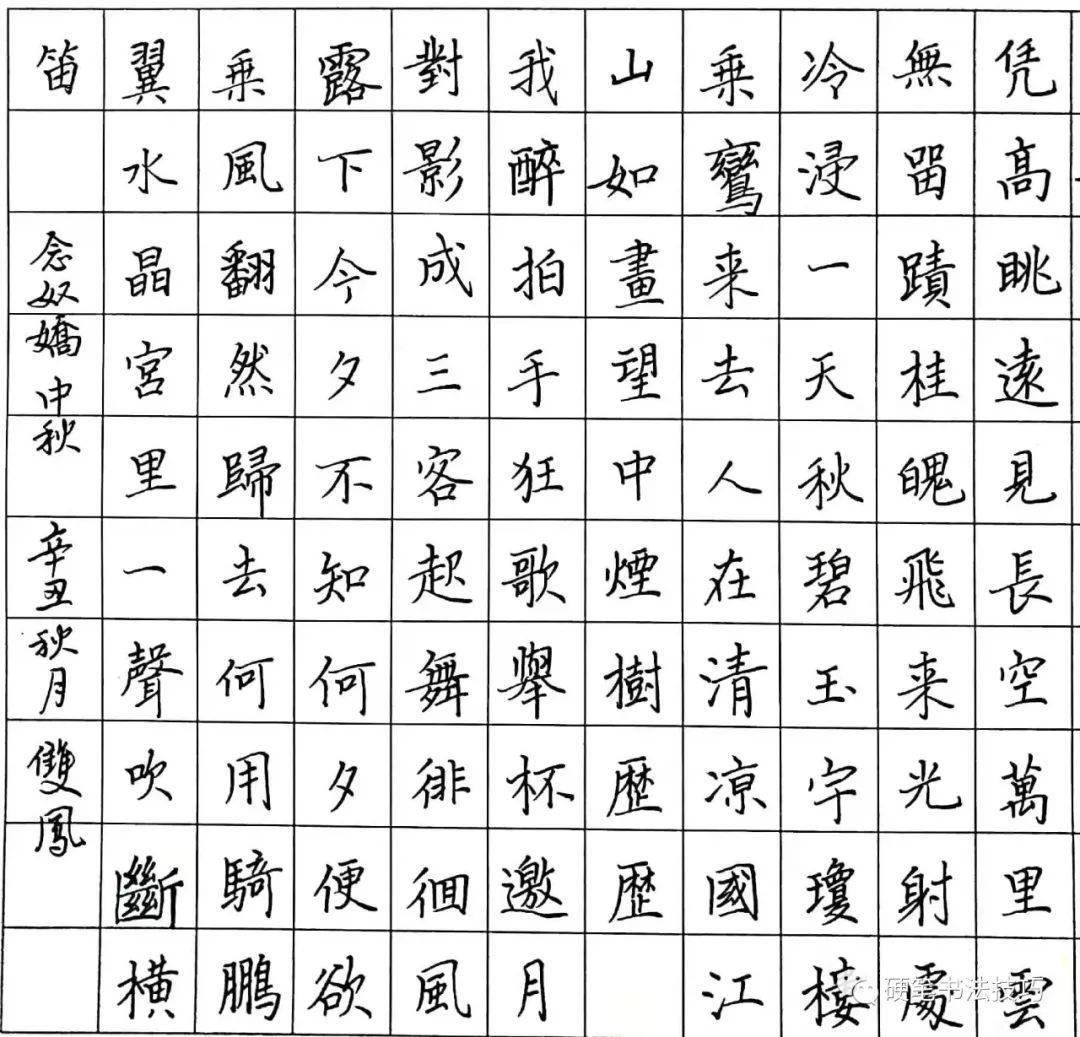 凭高眺遠見長空萬里雲
無㽞蹟桂魄飛来光射處
冷浸一天秋碧玉宇瓊楼
乗鸞来去人在清凉國江
山如畫望中煙樹歴歴
我醉拍手狂歌舉杯邀月
對影成三客起舞徘徊風
露下今夕不知何夕便欲
乗風翻然歸去何用騎鵬
翼水晶宮里一聲吹斷橫
笛
念奴嬌中秋 辛丑秋月 雙鳳
硬笔书法技巧